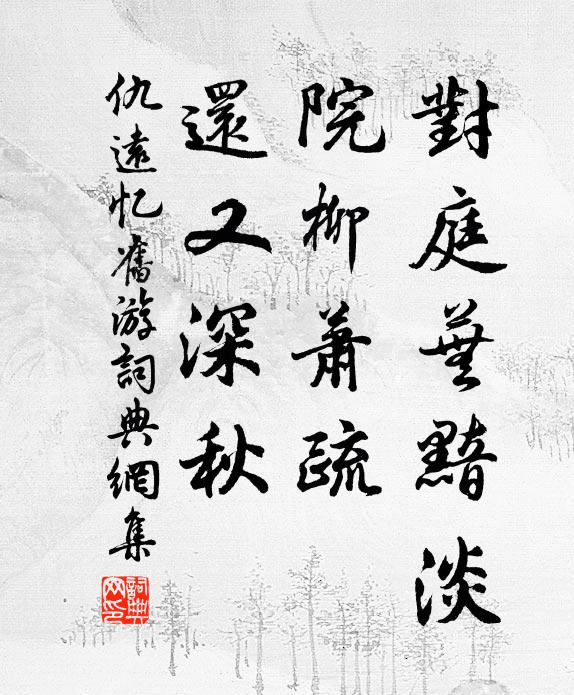 對庭蕪黯淡
院柳蕭疏
還又深秋
仇遠忆舊游詞典網集
詞典
网印